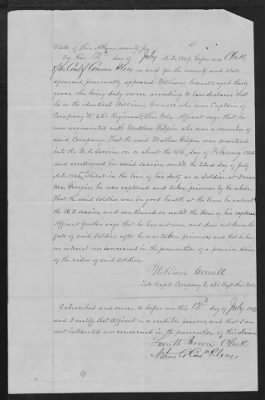 State of Ohio Athens county ss
On this 12th day of July A.D. 1869, before me Clerk
of the Court of Common Pleas in and for the county and State
aforesaid personally appeared William Cornell aged thirty
years who being duly sworn according to law declares that
he is the identical William Cornell who was Captain of
Company Regiment Ohio Vols. Affiant says that he
was acquainted with Matthew who was a member of
said Company. That the said Matthew was mustered
into the U.S. Service on or about the day of February 1864
and continued in said service until the 22nd day of July
A.D. 1864, that in the line of his duty as a Soldier at
Georgia, he was captured and taken prisoner by the rebels
That the said soldier was in good health at the time he entered
the U.S. service, and continued so until the time of his capture
Affiant further says that he has not seen and does not know the
fate of said Soldier after he was taken prisoner, and has
no interest or concern in the prosecution of a pension claim
of the widow of said soldier.
William Cornell
Late Capt. Company Regt Ohio Vols
Subscribed and sworn to before me this 12th day of July 1869
and I certify that Affiant is a credible person and that I am
not interested or concerned in the prosecution of this claim
Clerk
Athens C. Com. Pleas